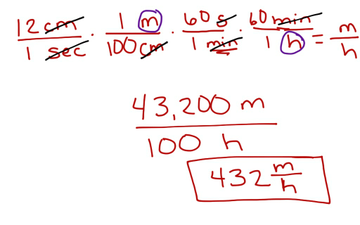 12 cm / 1 sec · 1 m / 100 cm · 60 s / 1 min · 60 min / 1 h = m / h
43,200 m / 100 h
432 m/h